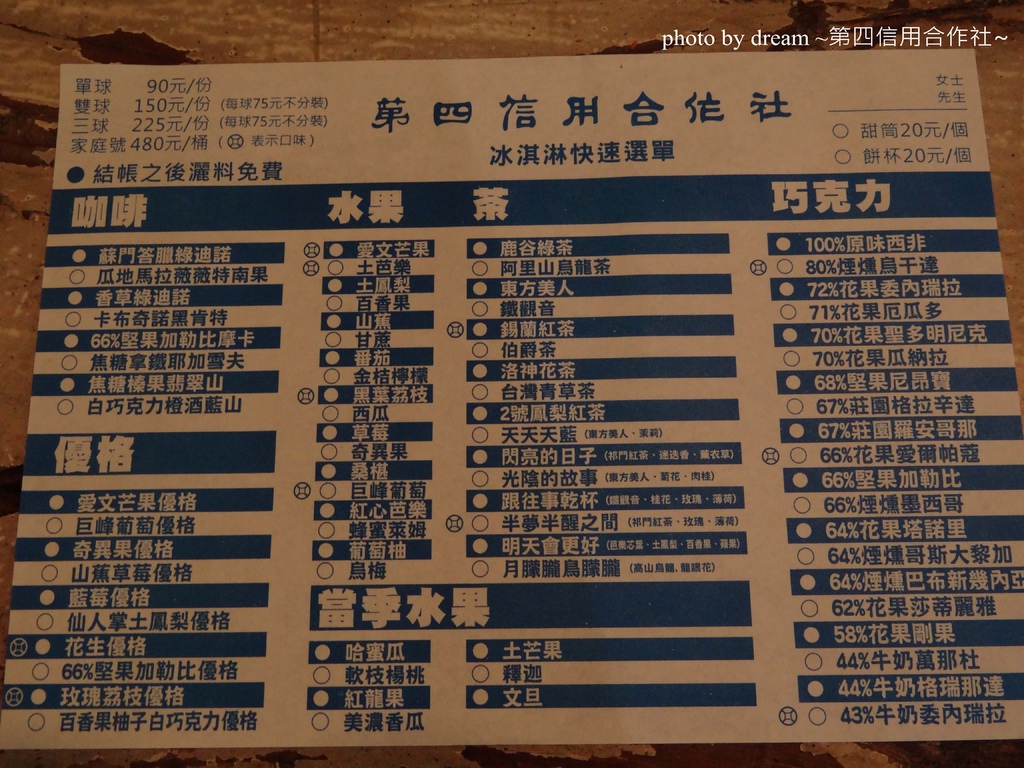 photo by dream ~第四信用合作社~
單球 90元/份
雙球 150元/份 (每球75元不分裝)
三球 225元/份 (每球75元不分裝)
家庭號480元/桶 ( 表示口味 )
● 結帳之後灑料免費
第四信用合作社
冰淇淋快速選單
女士
先生
○ 甜筒20元/個
○ 餅杯20元/個
咖啡
● 蘇門答臘綠迪諾
○ 瓜地馬拉薇薇特南果
● 香草綠迪諾
○ 卡布奇諾黑肯特
● 66%堅果加勒比摩卡
○ 焦糖拿鐵耶加雪夫
● 焦糖榛果翡翠山
○ 白巧克力橙酒藍山
優格
● 愛文芒果優格
○ 巨峰葡萄優格
● 奇異果優格
○ 山蕉草莓優格
● 藍莓優格
○ 仙人掌土鳳梨優格
● 花生優格
○ 66%堅果加勒比優格
● 玫瑰荔枝優格
○ 百香果柚子白巧克力優格
水果
● 愛文芒果
○ 土芭樂
● 土鳳梨
○ 百香果
● 山蕉
○ 甘蔗
● 番茄
○ 金桔檸檬
● 黑葉荔枝
○ 西瓜
● 草莓
○ 奇異果
● 桑椹
○ 巨峰葡萄
● 紅心芭樂
○ 蜂蜜萊姆
● 葡萄柚
○ 烏梅
茶
● 鹿谷綠茶
○ 阿里山烏龍茶
● 東方美人
○ 鐵觀音
● 錫蘭紅茶
○ 伯爵茶
● 洛神花茶
○ 台灣青草茶
● 2號鳳梨紅茶
○ 天天天藍 (東方美人、茉莉)
● 閃亮的日子 (祁門紅茶、迷迭香、薰衣草)
○ 光陰的故事 (東方美人、菊花、肉桂)
● 跟往事乾杯 (鐵觀音、桂花、玫瑰、薄荷)
○ 半夢半醒之間 (祁門紅茶、玫瑰、薄荷)
● 明天會更好 (芭樂芯葉、土鳳梨、百香果、蘋果)
○ 月朦朧鳥朦朧 (高山烏龍、龍眼花)
當季水果
● 哈蜜瓜
○ 軟枝楊桃
● 紅龍果
○ 美濃香瓜
● 土芒果
○ 釋迦
● 文旦
巧克力
● 100%原味西非
○ 80%煙燻烏干達
● 72%花果委內瑞拉
○ 71%花果厄瓜多
● 70%花果聖多明尼克
○ 70%花果瓜納拉
● 68%堅果尼昂寶
○ 67%莊園格拉辛達
● 67%莊園羅安哥那
○ 66%花果愛爾帕蔻
● 66%堅果加勒比
○ 66%煙燻墨西哥
● 64%花果塔諾里
○ 64%煙燻哥斯大黎加
● 64%煙燻巴布新幾內亞
○ 62%花果莎蒂麗雅
● 58%花果剛果
○ 44%牛奶萬那杜
● 44%牛奶格瑞那達
○ 43%牛奶委內瑞拉